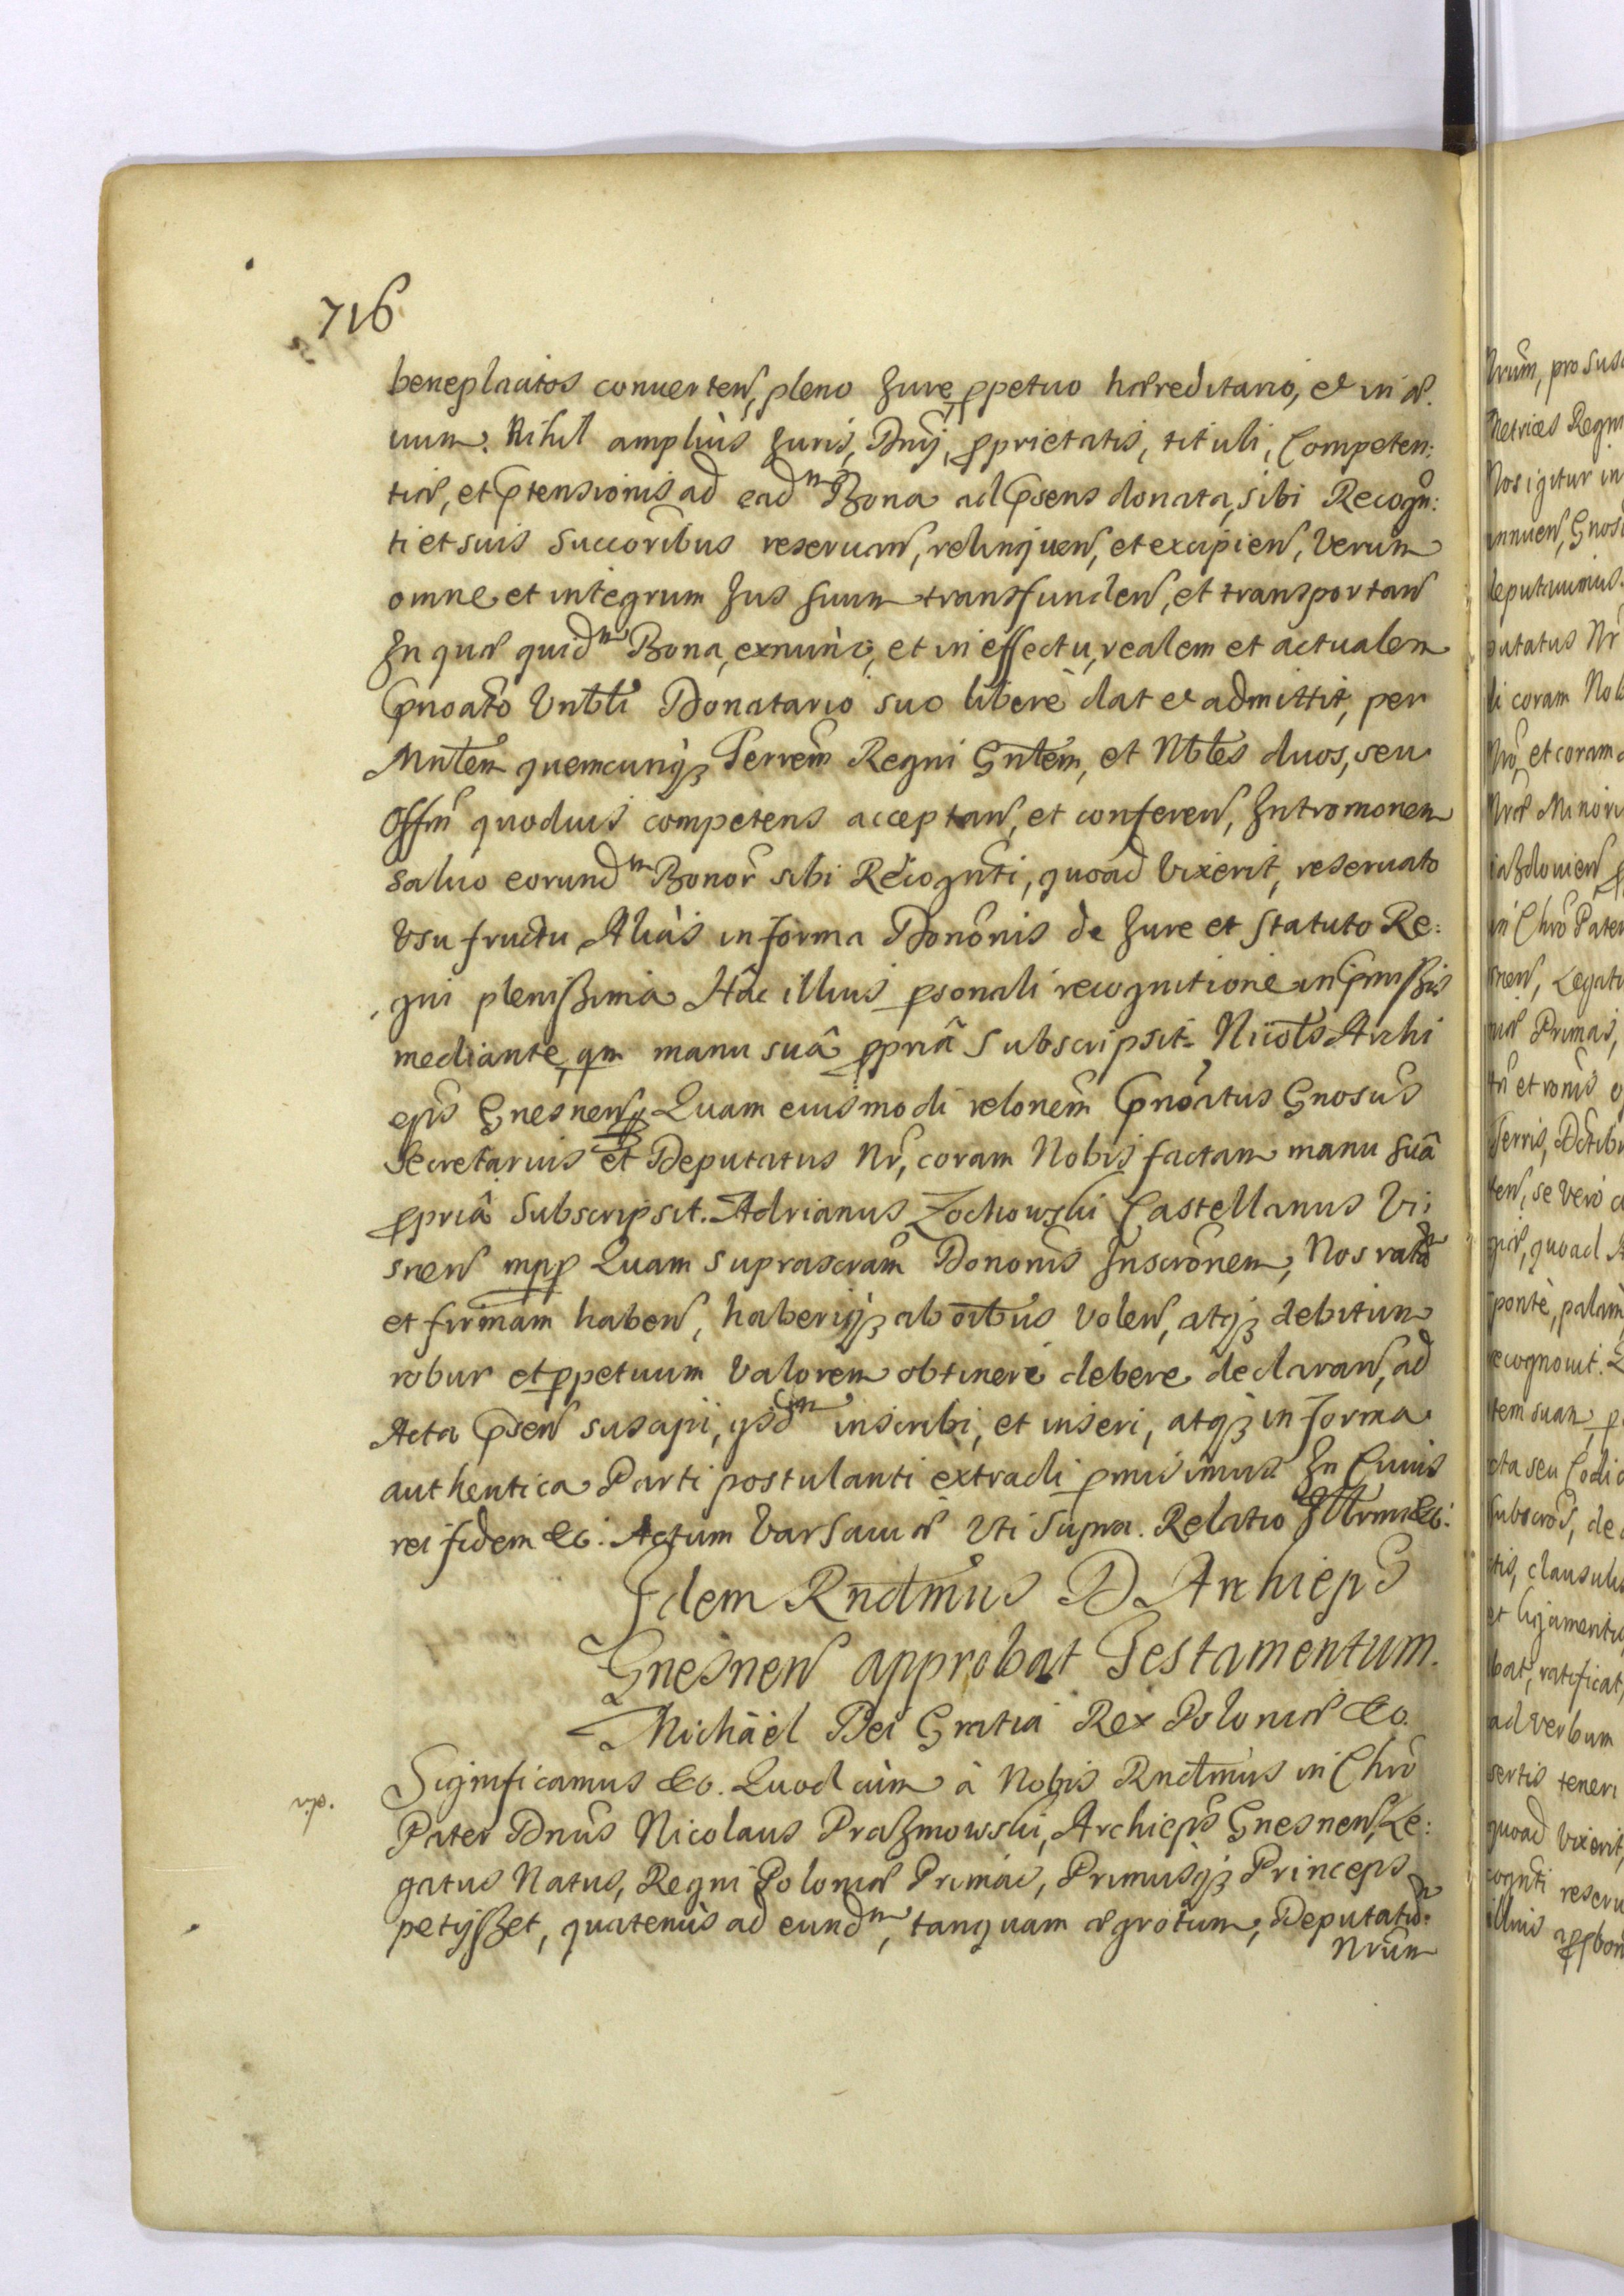 716
beneplacitos conuerten, pleno Jure ppetuo hæreditario, et in æ.
uum. Nihil ampliùs Juris, Dnij, pprietatis, tituli, Competen:
tiæ, et ptensionis ad ead~m Bona ad psens donata, sibi Recogn:
ti et suis Succoribus reseruan, relinquen, et excipien, Verum
omne et integrum Jus suum transfunden, et transportan
In quæ quid~m Bona, exnunc, et in effectu, realem et actualem
Pnoato Vnbli Donatario suo liberè dat et admittit, per
Mntem quemcunq3 Terrem Regni Gntem, et Nbles duos, seu
Offm quoduis competens acceptan, et conferen, Intromonem
saluo eorund~m Bonor sibi Recognti, quoad Vixerit, reseruato
Vsufructu Aliàs in forma Dononis de Jure et Statuto Re:
gni plenissima Hâc illius psonali recognitione in pmissis
mediante, qm manu suâ ppriâ Subscripsit. Nicols Archi
epus Gnesnen Quam eiusmodi relonem Pnoatus Gnosus
Secretarius et Deputatus Nr, coram Nobis factam manu suâ
ppriâ Subscripsit. Adrianus Zochowski Castellanus Vi:
snen mpp Quam suprascram Dononis Inscronem, Nos rata~m
et firmam haben, haberiq3 ab oibus volen, atq3 debitum
robur et ppetuum Valorem obtinere debere declaran, ad
Acta psen suscipi, ysd~m inscribi, et inseri, atq3 in forma
authentica Parti postulanti extradi pmisimus In Cuius
rei fidem &c. Actum Varsauiæ Vti Supra. Relatio Illrmi &c.
Idem Rndmus D Archieps
Gnesnen approbat Testamentum.
Michaël Dei Gratia Rex Poloniæ &c.
Significamus &c. Quod cùm à Nobis Rndmus in Chro
Pater Dnus Nicolaus Prażmowski, Archieps Gnesnen, Le:
gatus Natus, Regni Poloniæ Primas, Primusq3 Princeps
petijsset, quatenùs ad eund~m, tanquam ægrotum, Deputatu~m
Nrum